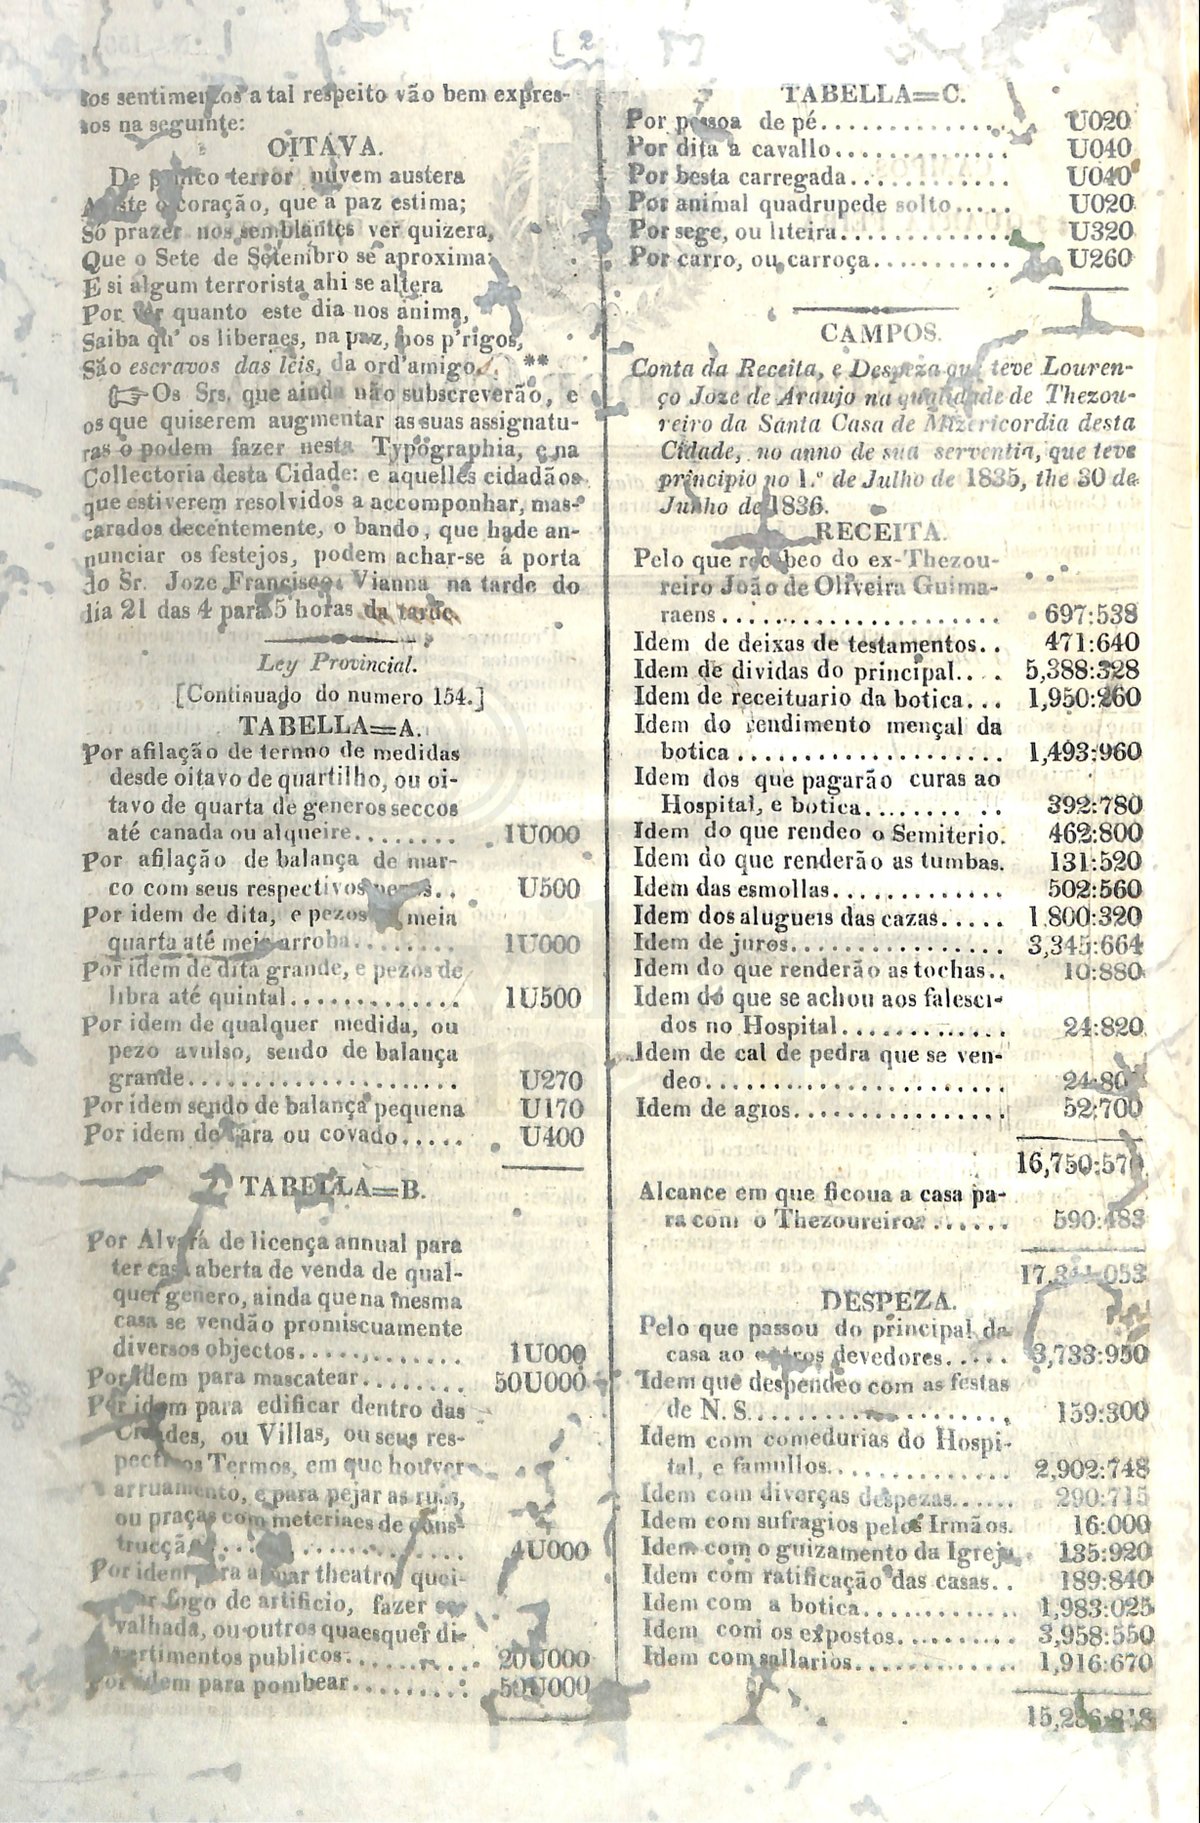 [ 2
sos sentimentos a tal respeito vão bem expres-
sos na seguinte:
OITAVA.
De panico terror nuvem austera
o coração, que a paz estima;
Só prazer nos semblantes ver quizera,
Que o Sete de Setembro se aproxima:
E si algum terrorista ahi se altera
Por ver quanto este dia nos anima,
Saiba qu' os liberaes, na paz, nos p'rigos,
São escravos das leis, da ord'amigos. **
Os Srs. que ainda não subscreverão, e
os que quiserem augmentar as suas assignatu-
ras o podem fazer nesta Typographia, e na
Collectoria desta Cidade: e aquelles cidadãos
que estiverem resolvidos a accompanhar, mas-
carados decentemente, o bando, que hade an-
nunciar os festejos, podem achar-se á porta
do Sr. Joze Francisco Vianna na tarde do
dia 21 das 4 para 5 horas da tarde
Ley Provincial.
[Continuado do numero 154.]
TABELLA=A.
Por afilação de terno de medidas
desde oitavo de quartilho, ou oi-
tavo de quarta de generos seccos
até canada ou alqueire....... 1U000
Por afilação de balança de mar-
co com seus respectivos pezos.. U500
Por idem de dita, e pezos meia
quarta até meia arroba........ 1U000
Por idem de dita grande, e pezos de
libra até quintal............. 1U500
Por idem de qualquer medida, ou
pezo avulso, sendo de balança
grande..................... U270
Por idem sendo de balança pequena U170
Por idem de vara ou covado..... U400
TABELLA=B.
Por Alvará de licença annual para
ter casa aberta de venda de qual-
quer genero, ainda que na mesma
casa se vendão promiscuamente
diversos objectos............. 1U000
Por idem para mascatear........ 50U000
Por idem para edificar dentro das
Cidades, ou Villas, ou seus res-
pectivos Termos, em que houver
arruamento, e para pejar as ruas,
ou praças com meteriaes de cons-
trucção.................... 4U000
Por idem para armar theatro, quei-
mar fogo de artificio, fazer ca-
valhada, ou outros quaesquer di-
vertimentos publicos........... 20U000
Por idem para pombear......... 50U000
TABELLA=C.
Por pessoa de pé.............. U020
Por dita a cavallo............. U040
Por besta carregada............ U040
Por animal quadrupede solto..... U020
Por sege, ou liteira............. U320
Por carro, ou carroça........... U260
CAMPOS.
Conta da Receita, e Despeza que teve Louren-
ço Joze de Araujo na qualidade de Thezou-
reiro da Santa Casa de Mizericordia desta
Cidade, no anno de sua serventia, que teve
principio no 1.º de Julho de 1835, the 30 de
Junho de 1836.
RECEITA.
Pelo que recebeo do ex-Thezou-
reiro João de Oliveira Guima-
raens...................... 697:538
Idem de deixas de testamentos.. 471:640
Idem de dividas do principal.... 5,388:328
Idem de receituario da botica... 1,950:260
Idem do rendimento mençal da
botica .................... 1,493:960
Idem dos que pagarão curas ao
Hospital, e botica........... 392:780
Idem do que rendeo o Semiterio. 462:800
Idem do que renderão as tumbas. 131:520
Idem das esmollas............. 502:560
Idem dos alugueis das cazas..... 1.800:320
Idem de juros................ 3,345:664
Idem do que renderão as tochas.. 10:880
Idem do que se achou aos falesci-
dos no Hospital............. 24:820
Idem de cal de pedra que se ven-
deo....................... 24:80
Idem de agios................ 52:700
16,750:570
Alcance em que ficou a casa pa-
ra com o Thezoureiro ...... 590:483
17,341:053
DESPEZA.
Pelo que passou do principal da
casa ao outros devedores..... 3,733:950
Idem que despendeo com as festas
de N. S.................... 159:300
Idem com comedurias do Hospi-
tal, e famullos.............. 2,902:748
Idem com diverças despezas...... 290:715
Idem com sufragios pelos Irmãos. 16:000
Idem com o guizamento da Igreja. 135:920
Idem com ratificação das casas.. 189:840
Idem com a botica............. 1,983:025
Idem com os expostos.......... 3,958:550
Idem com sallarios............. 1,916:670